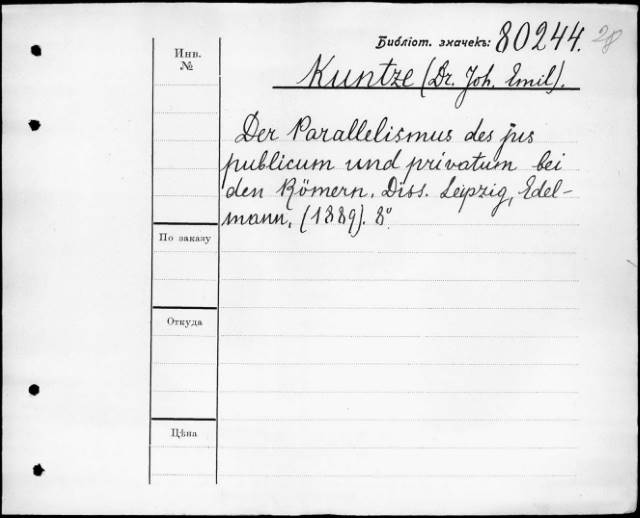 Библіот. значекъ: 80244. 28
Инв. №
Kuntze (Dr. Joh. Emil).
Der Parallelismus des jus
publicum und privatum bei
den Römern. Diss. Leipzig, Edel-
mann, (1889). 8º
По заказу
Откуда
Цѣна